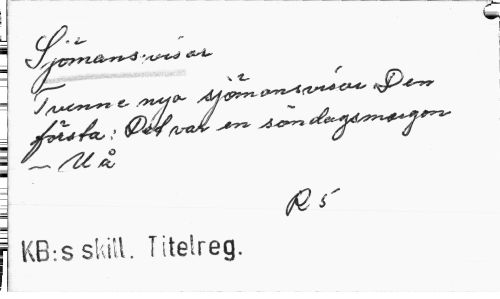 Sjömansvisor
Tvenne nya sjömansvisor. Den
första: Det var en söndagsmorgon
— U å
R 5
KB:s skill. Titelreg.